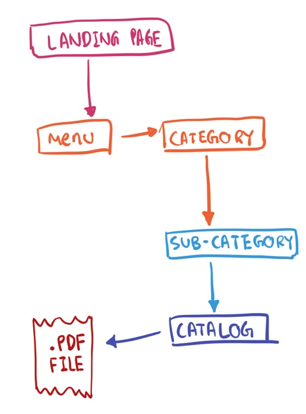 LANDING PAGE
MENU
CATEGORY
SUB-CATEGORY
CATALOG
.PDF
FILE